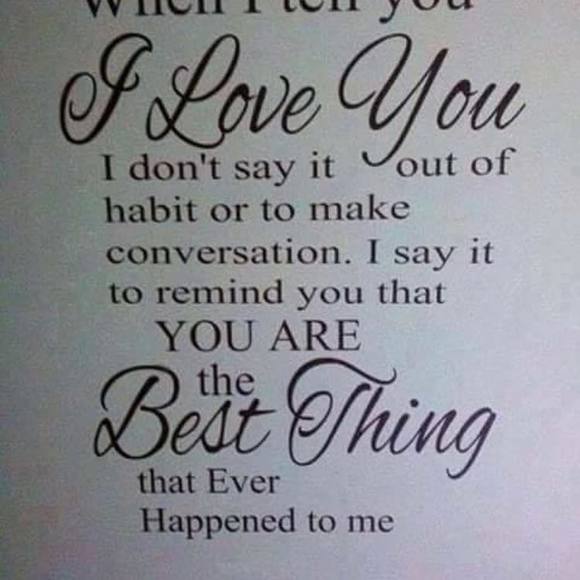 When I tell you
I Love You
I don't say it out of
habit or to make
conversation. I say it
to remind you that
YOU ARE
the
Best Thing
that Ever
Happened to me